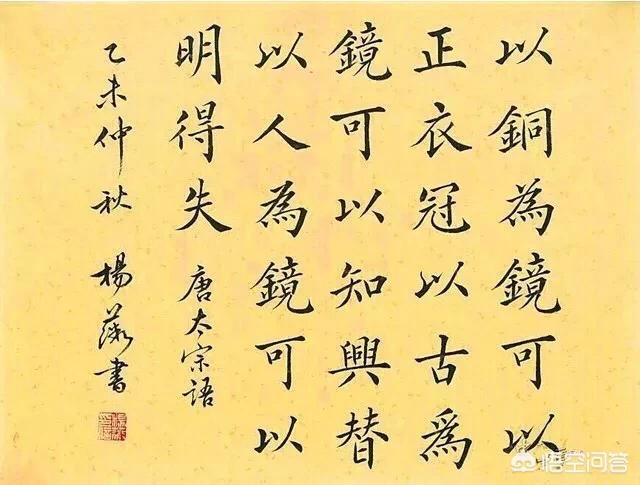 以銅為鏡可以
正衣冠以古爲
鏡可以知興替
以人為鏡可以
明得失
唐太宗语
乙未仲秋
楊薇書
悟空问答